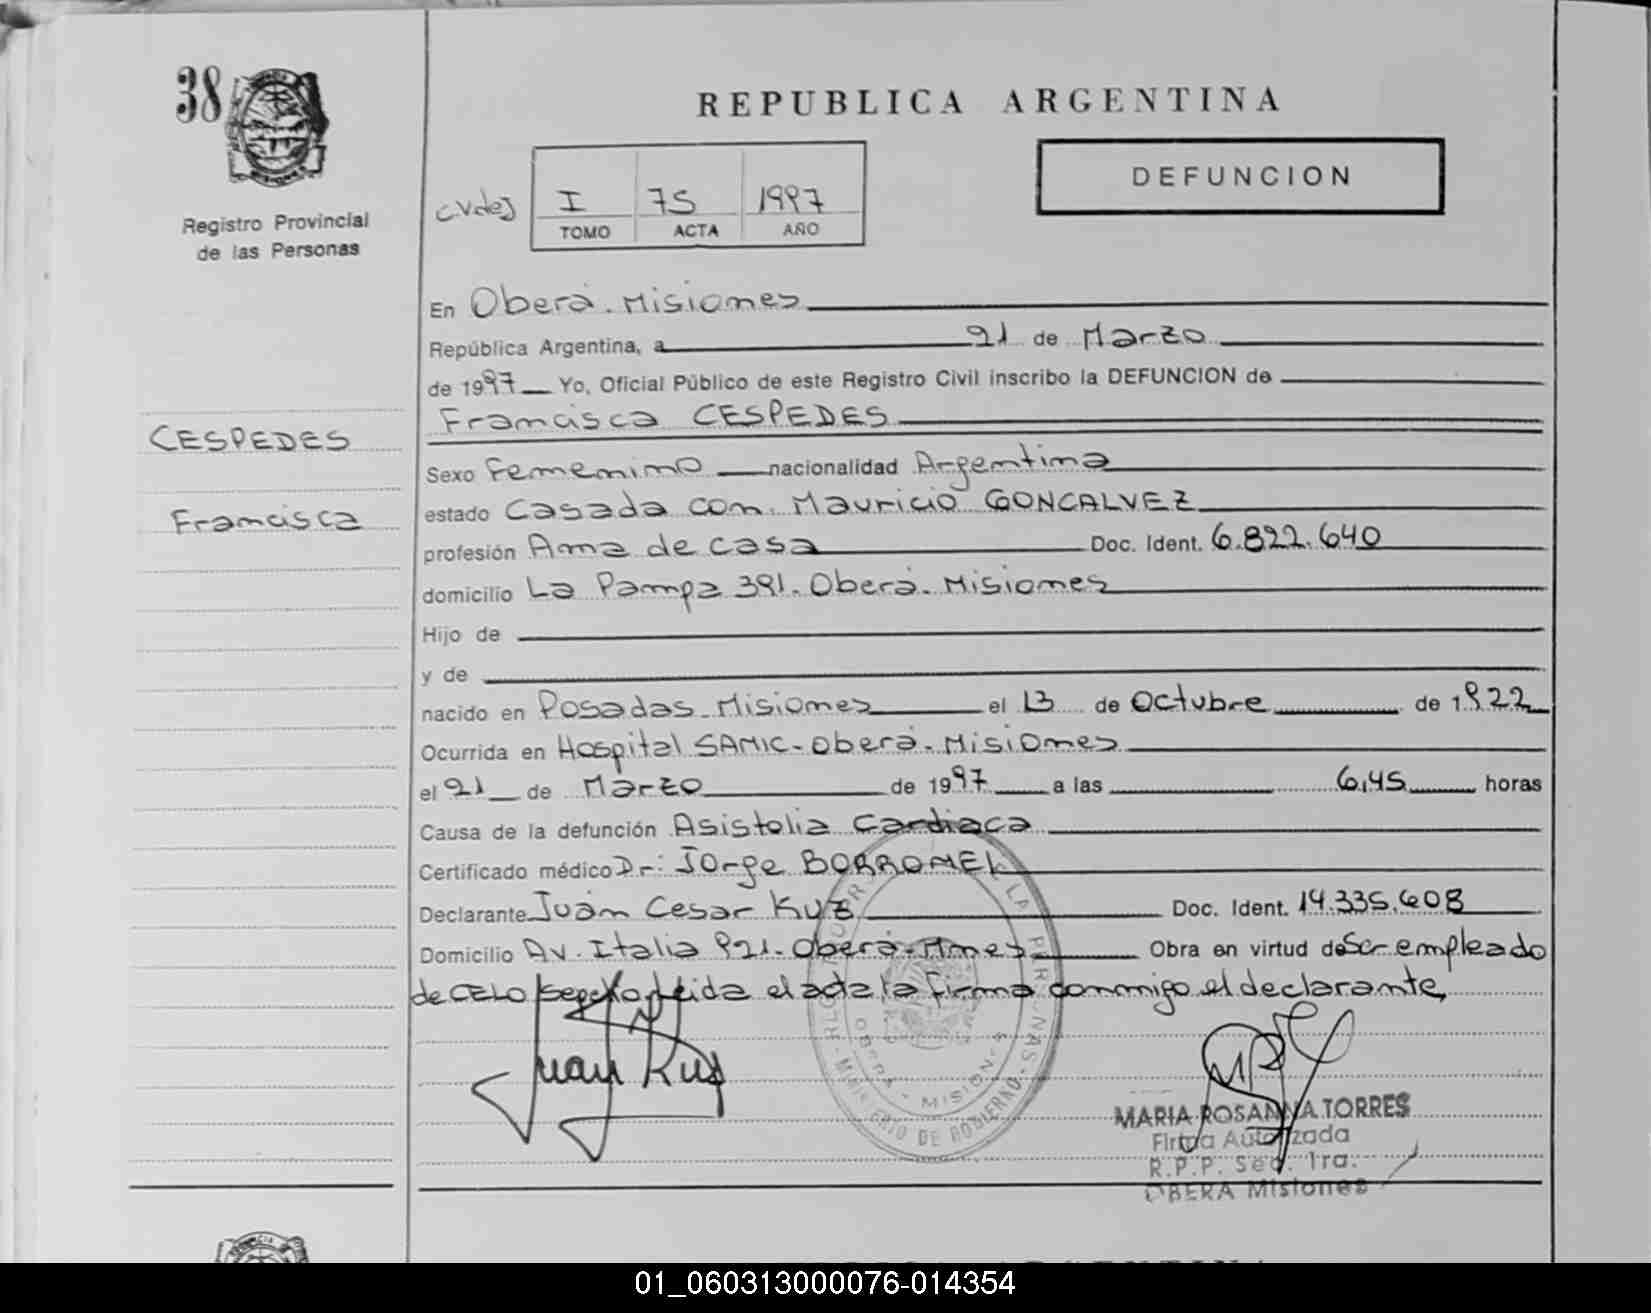 38
Registro Provincial
de las Personas
CESPEDES
Francisca
REPUBLICA ARGENTINA
DEFUNCION
I 75 1997
TOMO ACTA AÑO
En Oberá. Misiones
República Argentina, a 21 de Marzo
de 1997 Yo, Oficial Público de este Registro Civil inscribo la DEFUNCION de
Francisca CESPEDES
Sexo Femenino nacionalidad Argentina
estado Casada con. Mauricio GONCALVEZ
profesión Ama de casa Doc. Ident. 6.822.640
domicilio La Pampa 391. Oberá. Misiones
Hijo de
y de
nacido en Posadas. Misiones el 13 de Octubre de 1922
Ocurrida en Hospital SAMIC-Oberá. Misiones
el 21 de Marzo de 1997 a las 6,45 horas
Causa de la defunción Asistolia Cardiaca
Certificado médico Dr: Jorge BORROMEI
Declarante Juán Cesar KUZ Doc. Ident. 14.335.608
Domicilio Av. Italia 921. Oberá. Mnes Obra en virtud de Ser empleado
de CELO leida el acta la firma conmigo el declarante,
Juan Kuz
OBERA - MISIONES
MINISTERIO DE GOBIERNO
MARIA ROSANNA TORRES
Firma Autorizada
R.P.P. Sec. 1ra.
OBERA Misiones
01_060313000076-014354